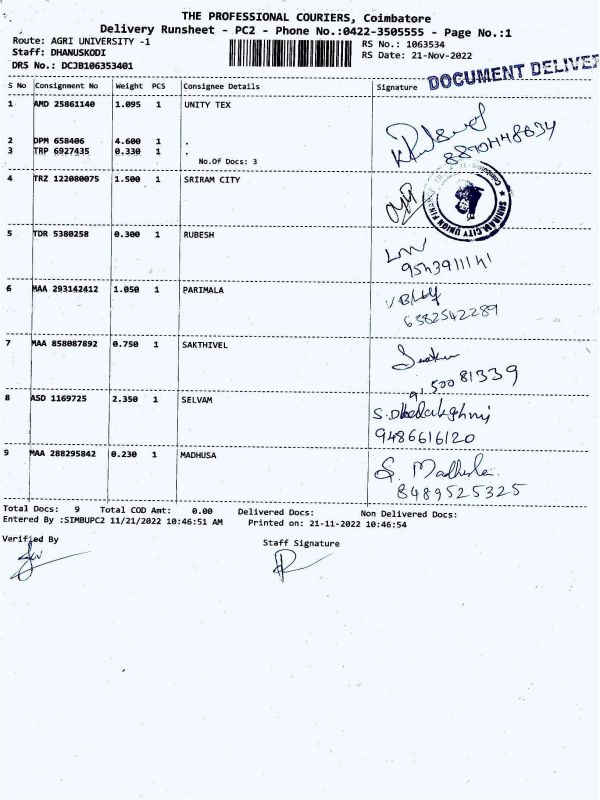 THE PROFESSIONAL COURIERS, Coimbatore
Delivery Runsheet - PC2 - Phone No.:0422-3505555 - Page No.:1
Route: AGRI UNIVERSITY -1
RS No.: 1063534
Staff: DHANUSKODI
RS Date: 21-Nov-2022
DRS No.: DCJB106353401
DOCUMENT DELIVER
S No Consignment No Weight PCS Consignee Details Signature
1 AMD 25861140 1.095 1 UNITY TEX
8870448634
2 DPM 658406 4.600 1 .
3 TRP 6927435 0.330 1 .
No.Of Docs: 3
4 TRZ 122080075 1.500 1 SRIRAM CITY
SRIRAM CITY UNION FINANCE
5 TDR 5380258 0.300 1 RUBESH
6 MAA 293142412 1.050 1 PARIMALA
6382542289
7 MAA 858087892 0.750 1 SAKTHIVEL
8 ASD 1169725 2.350 1 SELVAM
9486616120
9 MAA 288295842 0.230 1 MADHUSA
8489525325
Total Docs: 9 Total COD Amt: 0.00 Delivered Docs: Non Delivered Docs:
Entered By :SIMBUPC2 11/21/2022 10:46:51 AM Printed on: 21-11-2022 10:46:54
Verified By
Staff Signature